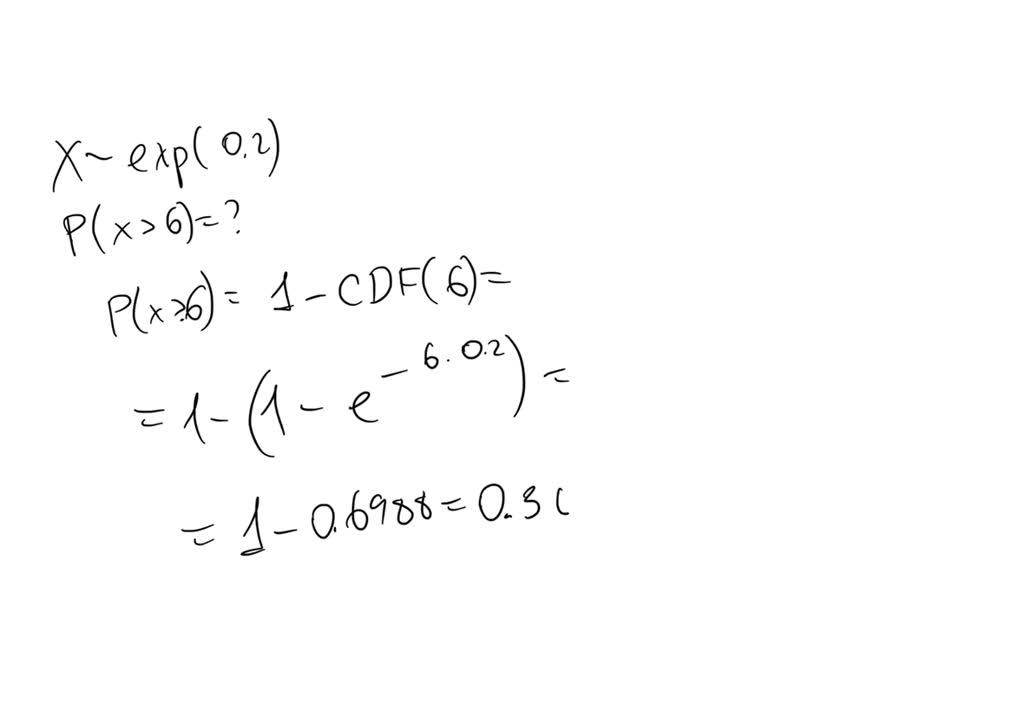 X~exp(0.2)
P(x>6)=?
P(x≥6)= 1-CDF(6)=
=1-(1-e^{-6·0.2})=
=1-0.6988=0.3